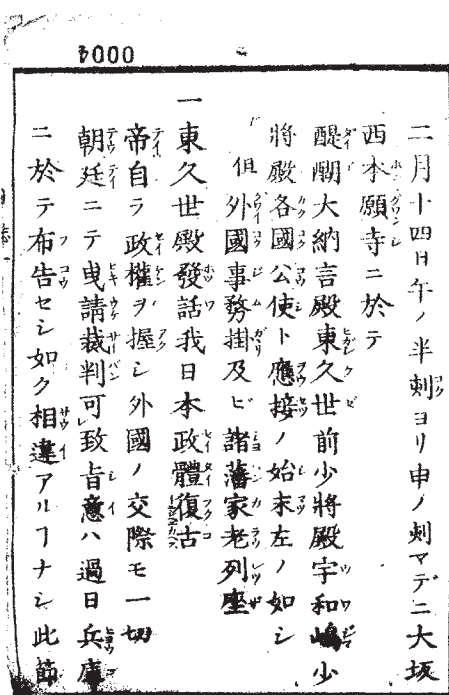 0004
二月十四日午ノ半刻ヨリ申ノ刻マデニ大坂
西本願寺ニ於テ
醍醐大納言殿東久世前少將殿宇和嶋少
將殿各國公使ト應接ノ始末左ノ如シ
但外國事務掛及ビ諸藩家老列座
一東久世殿發話我日本政體復古
帝自ラ政權ヲ握シ外國ノ交際モ一切
朝廷ニテ曳請裁判可致旨意ハ過日兵庫
ニ於テ布告セシ如ク相違アルヿナシ此節